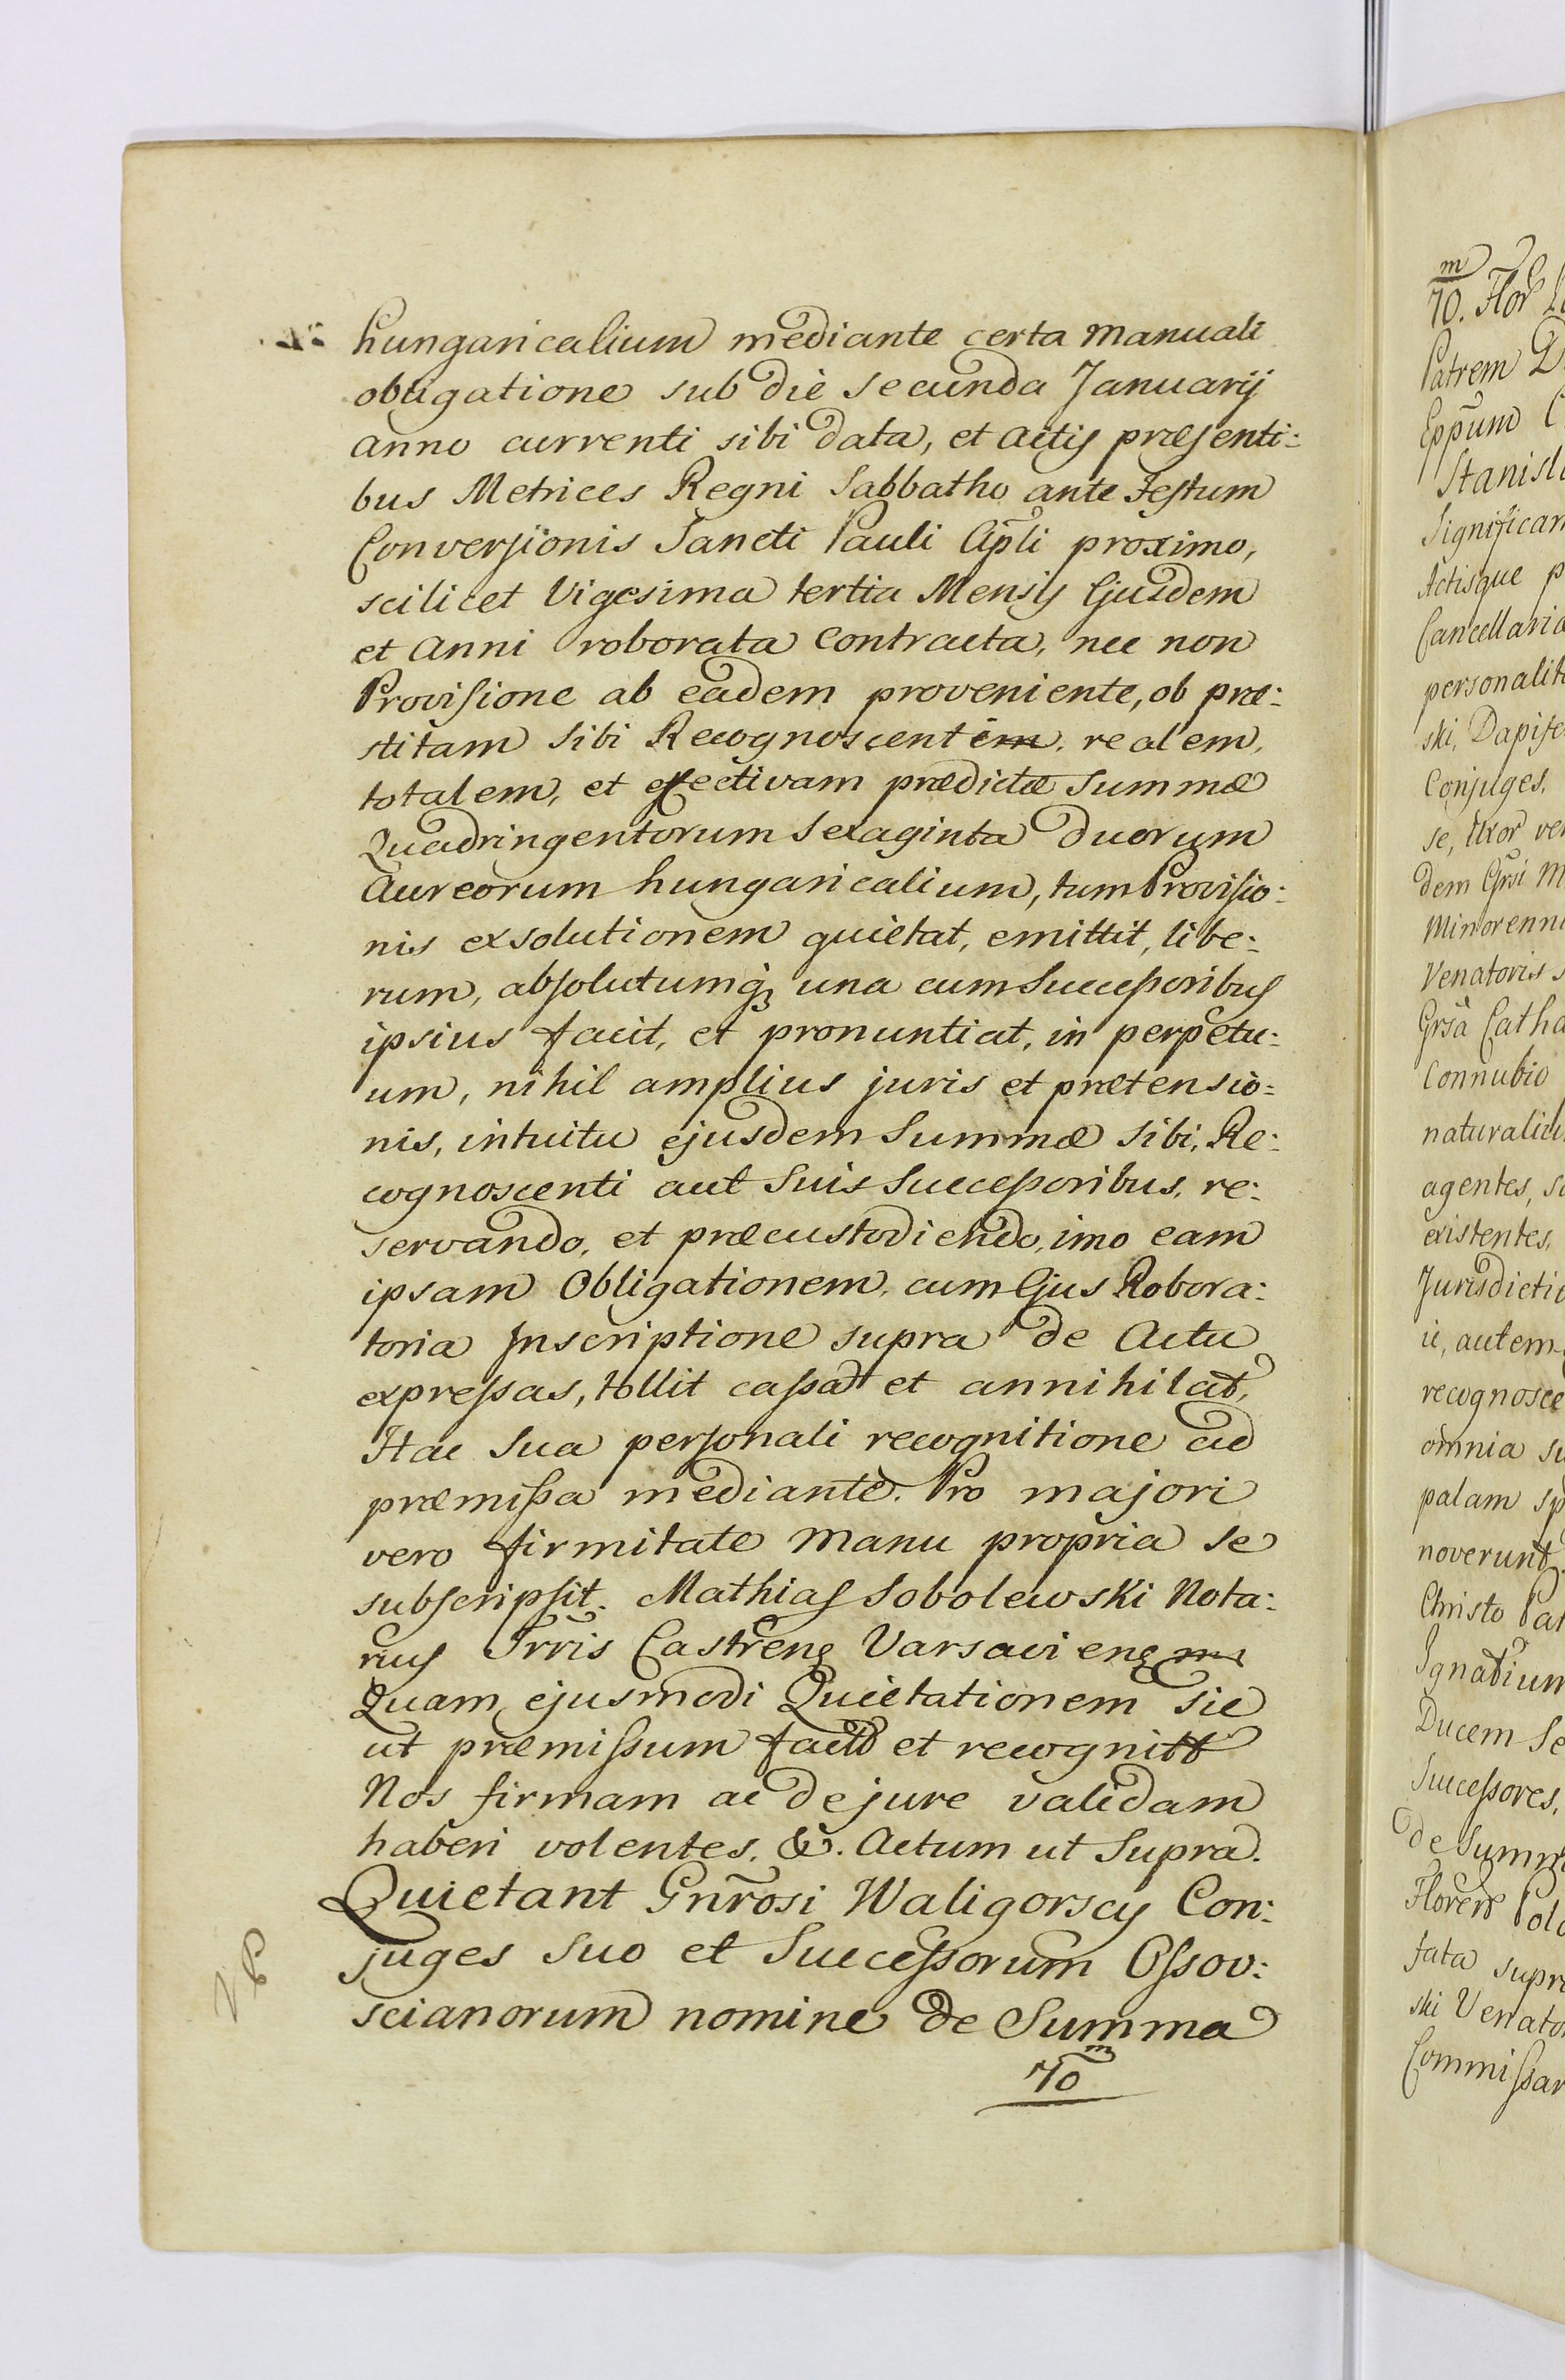 hungaricalium mediante certa manuali
obligatione sub die secunda Januarij
anno currenti sibi data, et actis præsenti:
bus Metrices Regni Sabbatho ante Festum
Conversionis Sancti Pauli Apli proximo,
scilicet Vigesima tertia Mensis Ejusdem
et Anni roborata contracta, nec non
Provisione ab eadem proveniente, ob præ:
stitam sibi Recognoscenti realem,
totalem, et effectivam prædictæ summæ
Quadringentorum Sexaginta Duorum
Aureorum hungaricalium, tum Provisio:
nis exsolutionem quietat, emittit, libe:
rum, absolutumq; una cum Successoribus
ipsius facit, et pronuntiat, in perpetu:
um, nihil amplius juris et prætensio:
nis, intuitu ejusdem Summæ sibi, Re:
cognoscenti aut Suis Successoribus, re:
servando, et præcustodiendo, imo eam
ipsam Obligationem, cum Ejus Robora:
toria Inscriptione supra de Actu
expressas, tollit cassat et annihilat,
Hac Sua personali recognitione ad
præmissa mediante. Pro majori
vero firmitate manu propria se
subscripsit. Mathias Sobolewski Nota:
rius Trris Castreng Varsavieng
Quam ejusmodi Quietationem sic
ut præmissum factd et recognitt
Nos firmam ac de jure validam
haberi volentes. &. Actum ut Supra.
Quietant Gnrosi Waligorscy Con:
juges suo et Successorum Ossov:
scianorum nomine de Summa
m
70
m
70. Flor
Patrem D
Eppum C
Stanisla
Significan
Actisque p
Cancellaria
personalit
ski, Dapife
Conjuges,
se, Uxor ve
dem Grsi M
Minorenni
Venatoris s
Grsa Catha
Connubio
naturali
agentes, s
existentes,
Jurisdictio
autem
recognosce
omnia su
palam sp
noverunt
Christo Pat
Ignatium
Ducem Se
Successores,
de Summ
Floren Polo
fata supra
ski Venato
Commissar